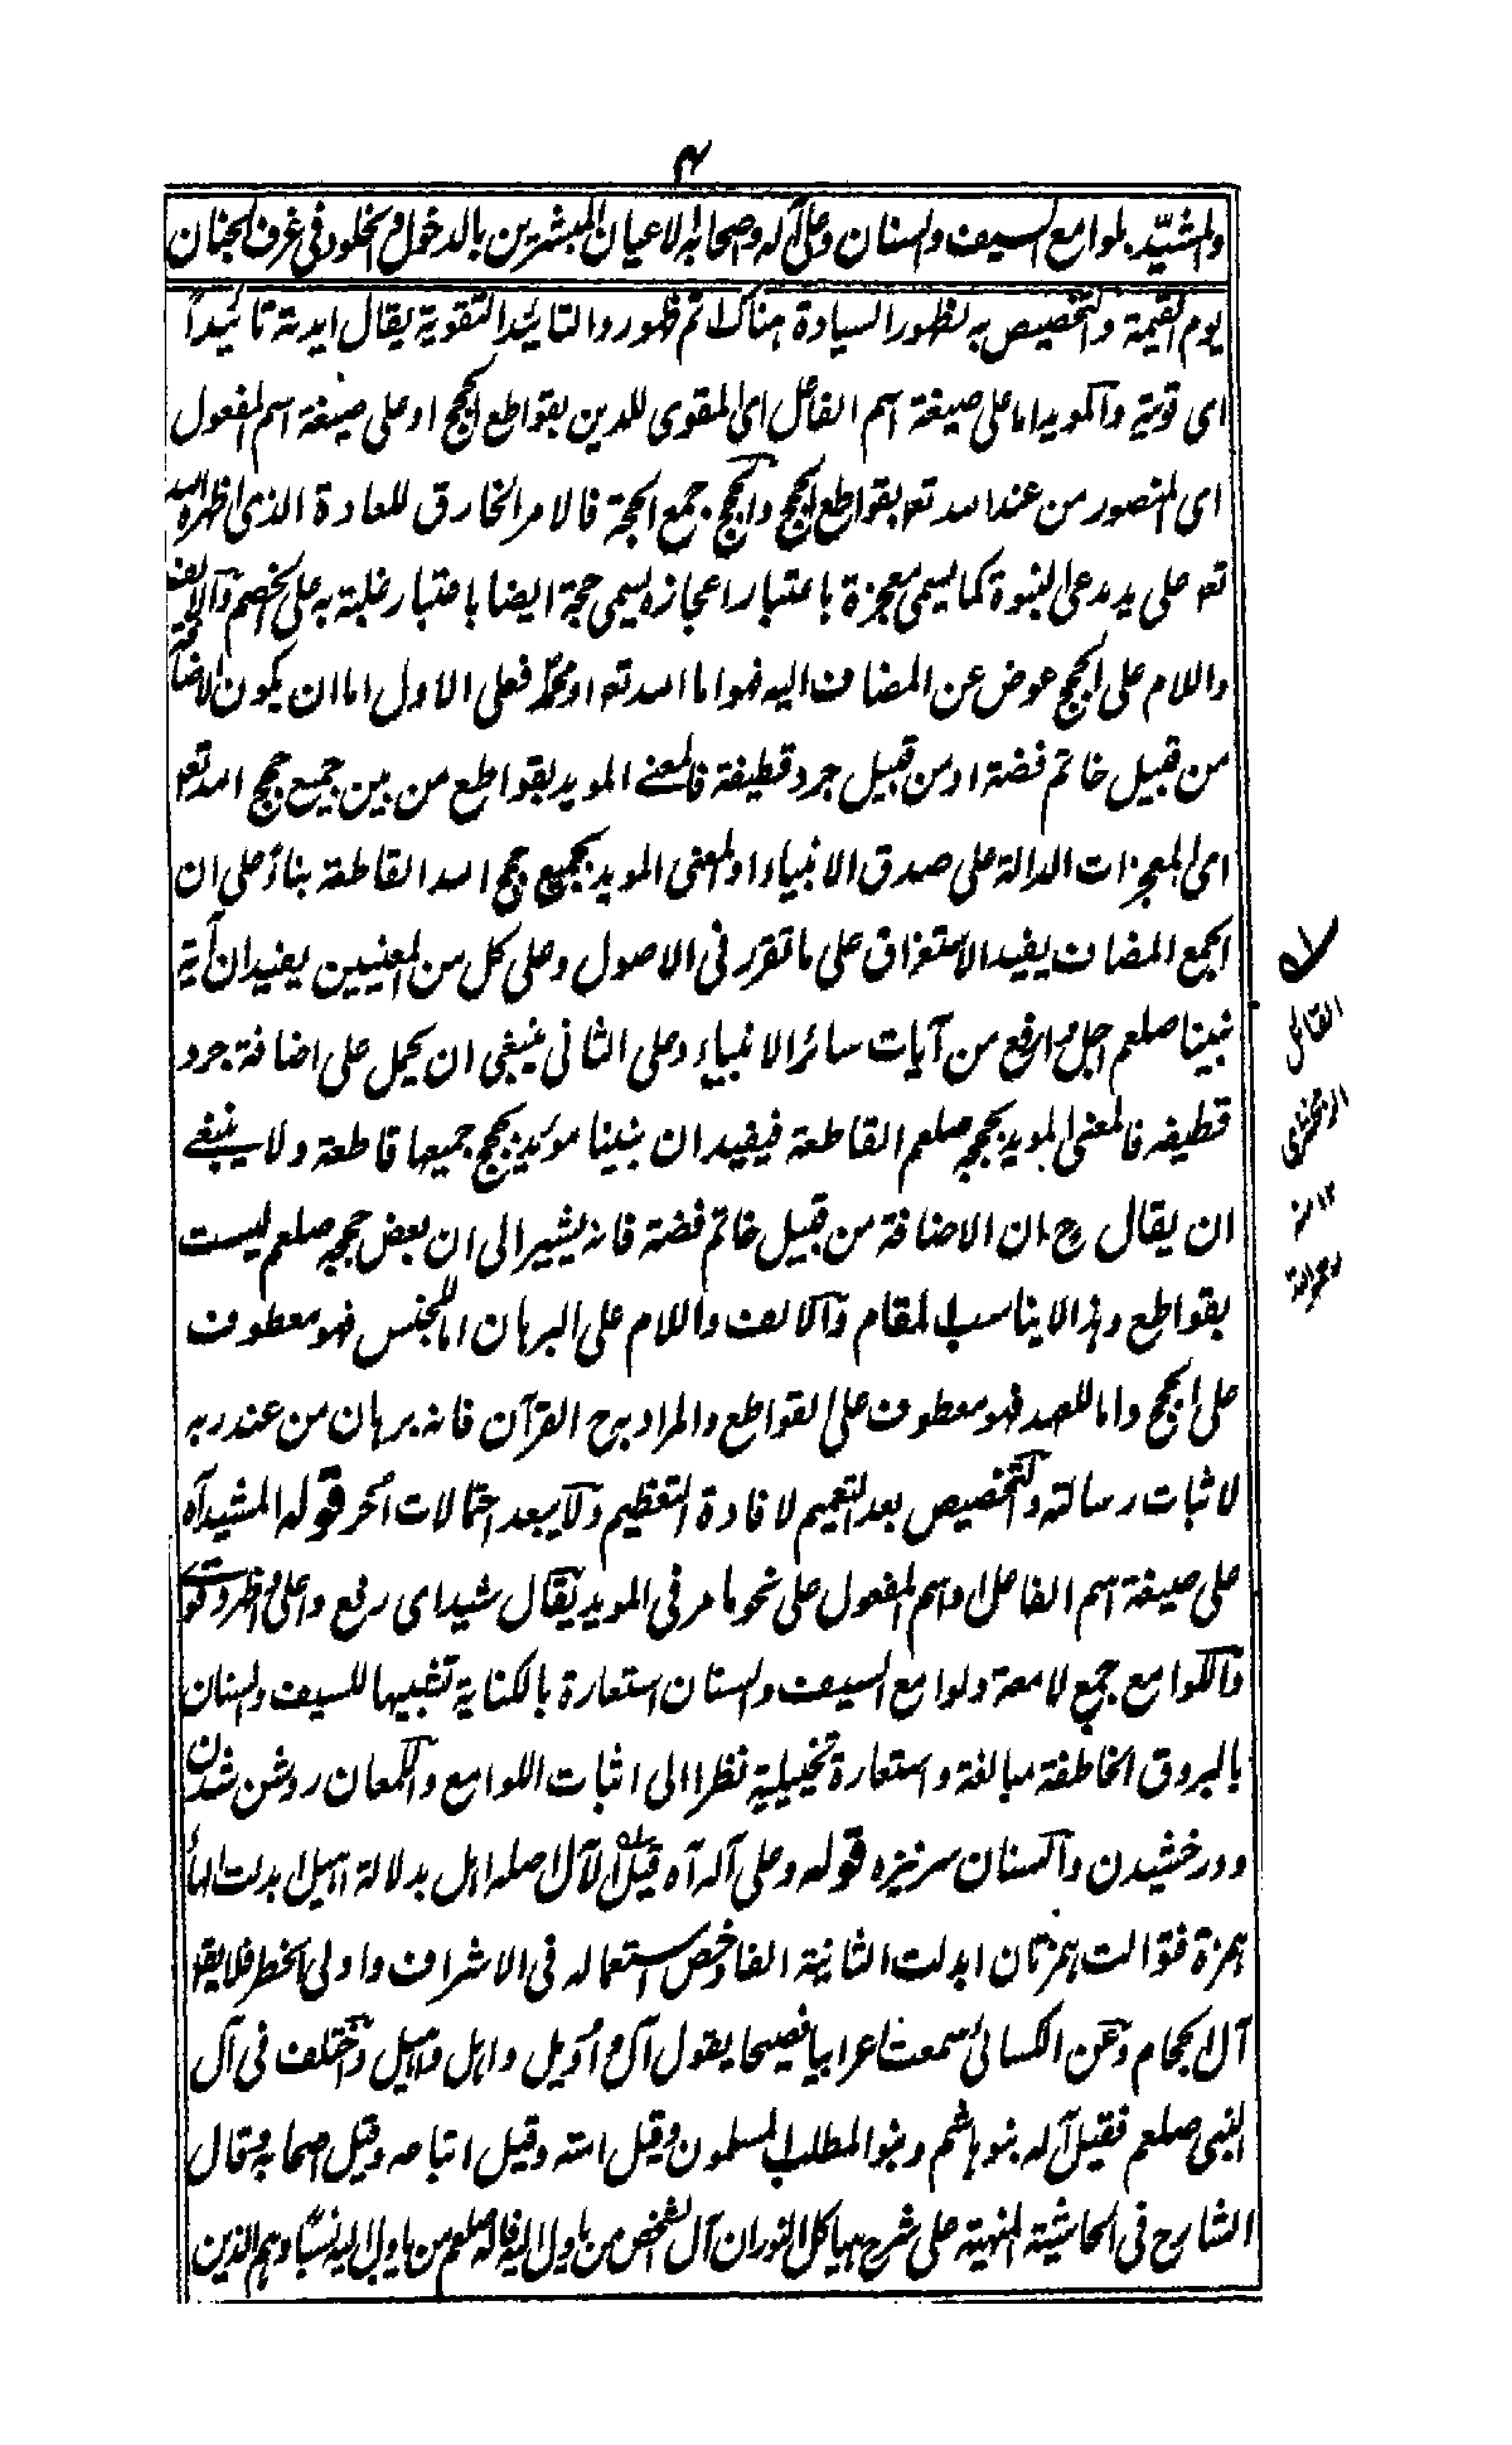 ٤
والمشيّد بلوامع السيف والسنان وعلى آله واصحابه الاعيان المبشرين بالدخول والخلود فى غرف الجنان
يوم القيمة والتخصيص به لظهور السيادة هناك اتم ظهور والتائيد التقوية يقال ايدته تائيداً
اى قوية والمويد اما على صيغة اسم الفاعل اى المقوى للدين بقواطع الحجج او على صيغة اسم المفعول
اى المنصور من عند الله تعه بقواطع الحجج والحجج جمع الحجة فالامر الخارق للعادة الذى اظهره الله
تعه على يد مدعى النبوة كما يسمى معجزة باعتبار اعجازه يسمى حجة ايضا باعتبار غلبة به على الخصم والالف
واللام على الحجج عوض عن المضاف اليه فهو اما الله تعه او محمد فعلى الاول اما ان يكون الاضافة
من قبيل خاتم فضة او من قبيل جرد قطيفة فالمعنے المويد بقواطع من بين جميع حجج الله تعه
اى المعجزات الدالة على صدق الانبياء او المعنى المويد بجميع حجج الله القاطعة بناءً على ان
الجمع المضاف يفيد الاستغراق على ما تقرر فى الاصول وعلى كل من المعنيين يفيد ان آية
نبينا صلعم اجل وارفع من آيات سائر الانبياء وعلى الثانى ينبغى ان يحمل على اضافة جرد
قطيفه فالمعنى المويد بحججه صلعم القاطعة فيفيد ان نبينا مؤيد بحجج جميعها قاطعة ولا ينبغے
ان يقال ح ان الاضافة من قبيل خاتم فضة فانه يشير الى ان بعض حججه صلعم ليست
بقواطع وهذا لا يناسب المقام والالف واللام على البرهان اما للجنس فهو معطوف
على الحجج واما للعهد فهو معطوف على القواطع والمراد به ح القرآن فانه برهان من عند ربه
لاثبات رسالته والتخصيص بعد التعميم لافادة التعظيم ولا يبعد احتمالات اُخر قوله المشيد آه
على صيغة اسم الفاعل او اسم المفعول على نحو ما مر فى المويد يقال شيد اى رفع واعلى واظهر وقوله
واللوامع جمع لامعة ولوامع السيف والسنان استعارة بالكناية تشبيها للسيف والسنان
بالبروق الخاطفة مبالغة واستعارة تخييلية نظرا الى اثبات اللوامع واللمعان روشن شدن
ودرخشيدن والسنان سرنيزه قوله وعلى آله آه قيل الآل اصله اهل بدلالة اهيل ابدلت الهاء
همزة فتوالت همزتان ابدلت الثانية الفا وخص استعماله فى الاشراف واولى الخطر فلا يقال
آل الحجام وعن الكسائى سمعت اعرابيا فصيحا يقول آل واُويل واهل واهيل واختلف فى آل
النبى صلعم فقيل آله بنو هاشم وبنو المطلب المسلمون وقيل امته وقيل اتباعه وقيل اصحابه وقال
الشارح فى الحاشية المنهية على شرح هياكل النور ان آل الشخص من ياول اليه فاله صلعم من ياول اليه نسبًا وهم الذين
له
القائل
الزمخشرى
١٢ منه